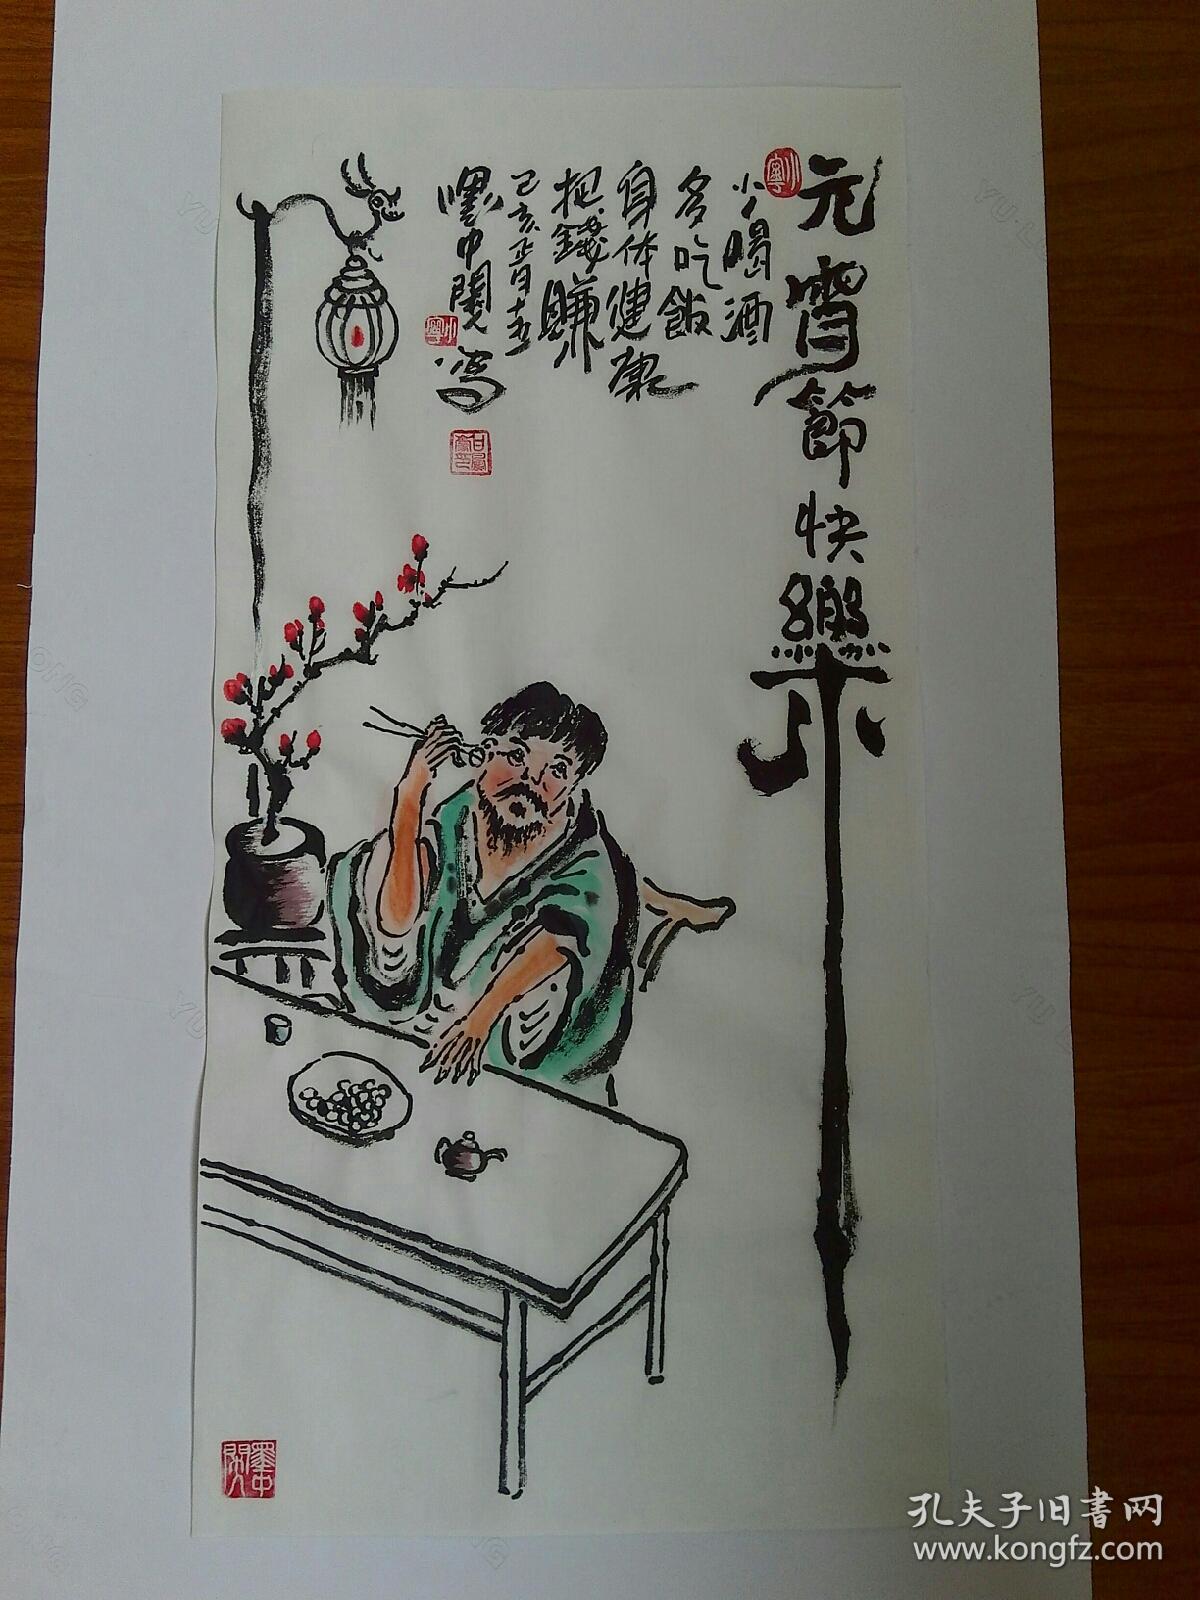 元宵節快樂
少喝酒
多吃飯
身体健康
把錢賺
己亥正月十五
墨中闖寫
孔夫子旧书网
www.kongfz.com